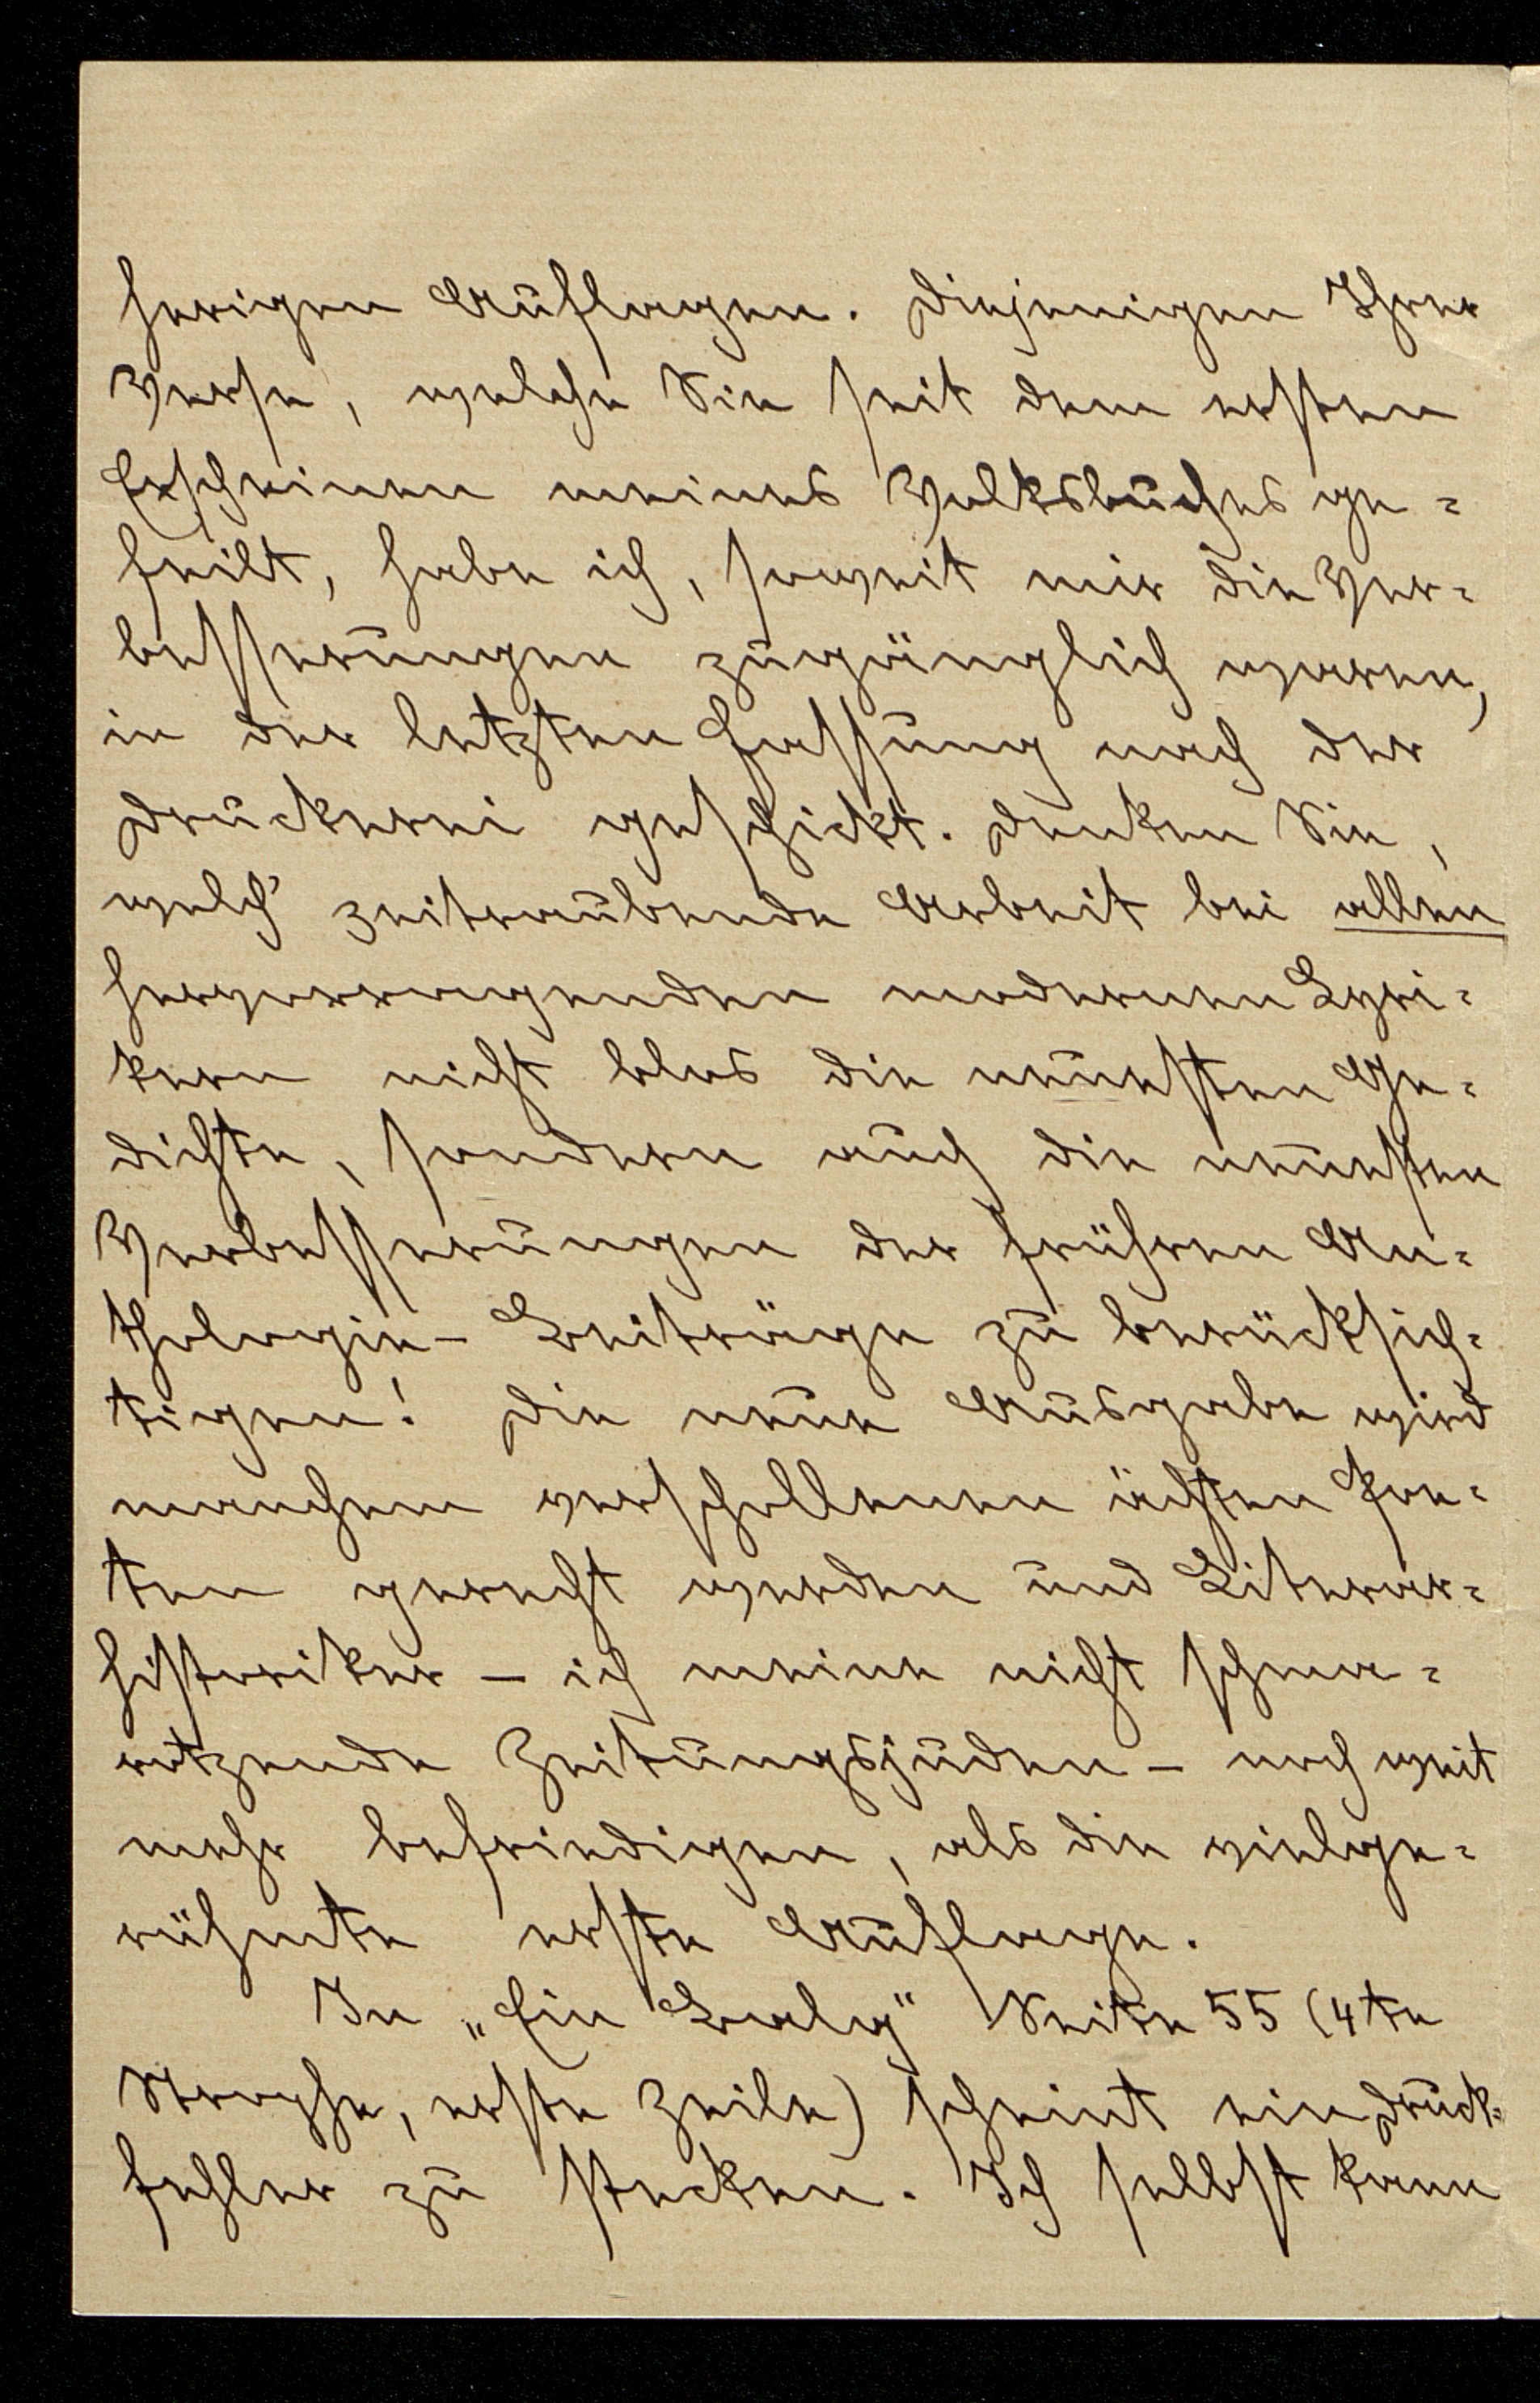 herigen Auflagen. Diejenigen Ihrer
Verse, welche Sie seit dem ersten
Erscheinen meines Volksbuches ge-
feilt, habe ich, soweit mir die Ver-
besserungen zugänglich waren,
in der letzten Fassung nach der
Druckerei geschickt. Denken Sie,
welch' zeitraubende Arbeit bei allen
hervorragenden modernen Lyri-
kern nicht blos die neuesten Ge-
dichte, sondern auch die neuesten
Verbesserungen der frühren An-
thologie-Beiträge zu berücksich-
tigen! Die neue Ausgabe wird
manchem verschollenen ächten Poe-
ten gerecht werden und Literar-
historiker – ich meine nicht schma-
rotzende Zeitungsjuden – noch weit
mehr befriedigen, als die vielge-
rühmte erste Auflage.
In „Ein Balg" Seite 55 (4te
Strophe, erste Zeile) scheint ein Druck-
fehler zu stecken. Ich selbst kann